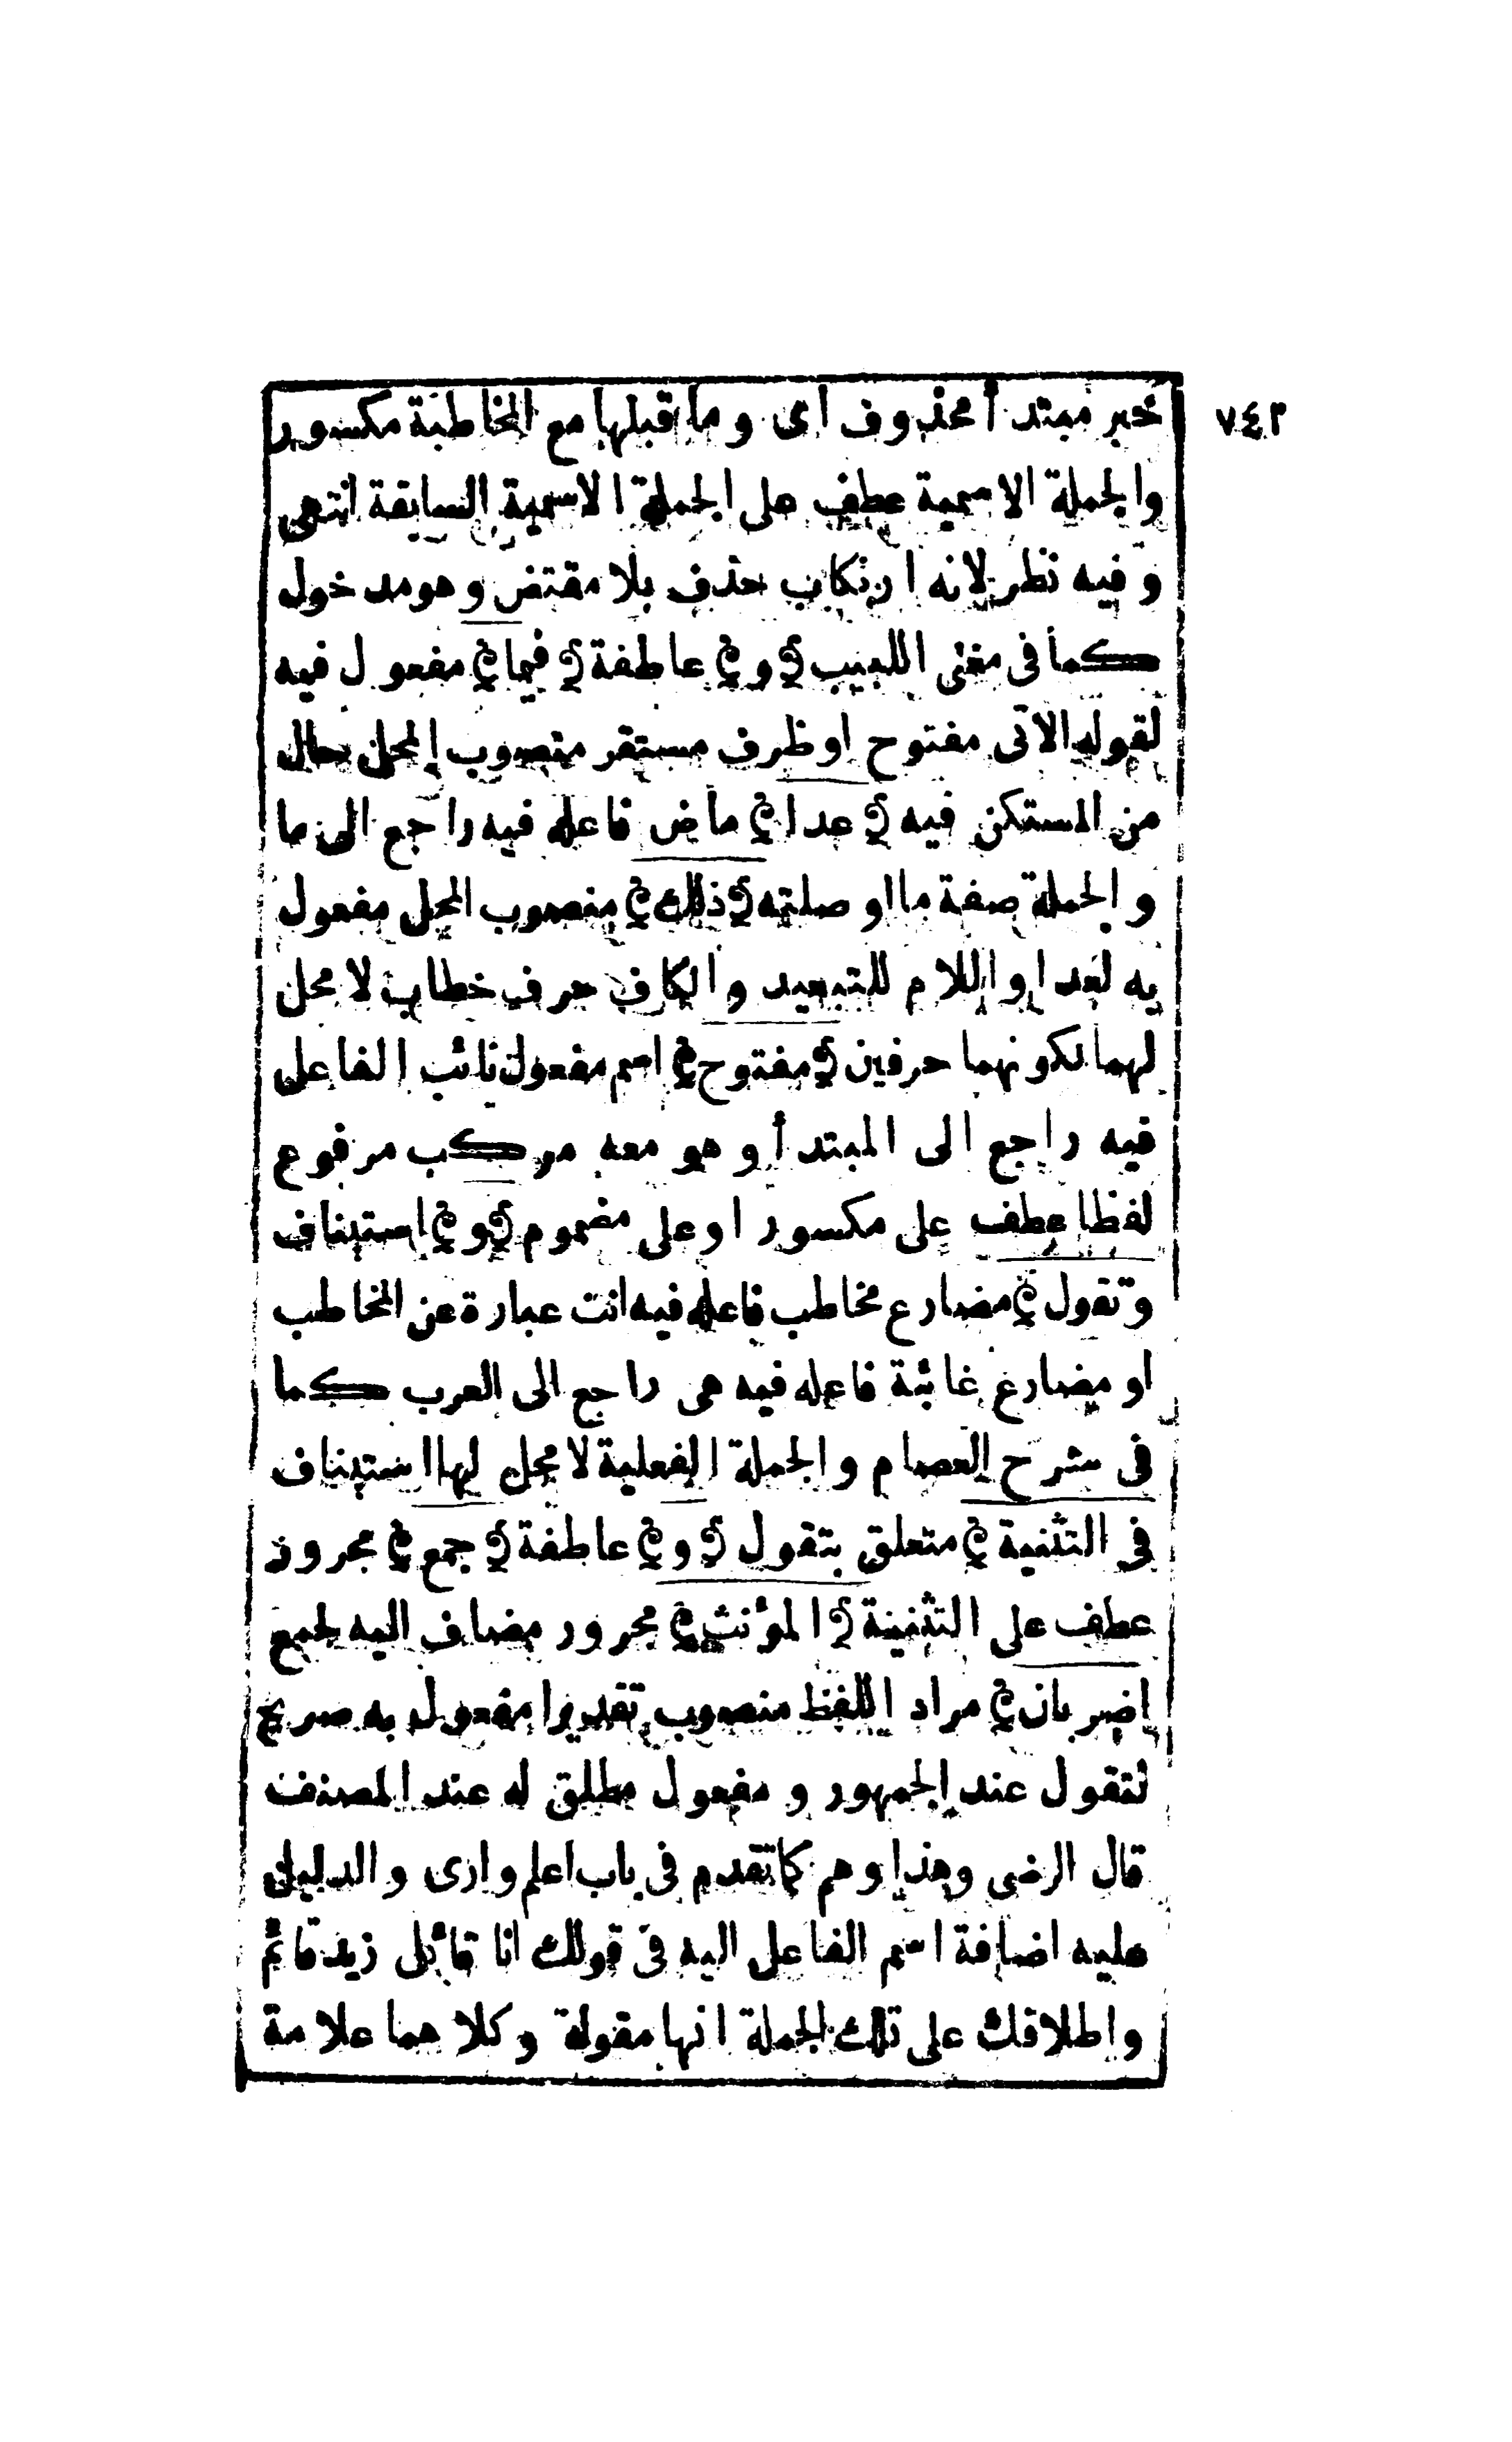 ٧٤٢
خبر مبتدأ محذوف اى وما قبلها مع المخاطبة مكسور
والجملة الاسمية عطف على الجملة الاسمية السابقة انتهى
وفيه نظر لانه ارتكاب حذف بلا مقتض وهو مدخول
كما فى مغنى اللبيب (و) عاطفة (فيما) مفعول فيه
لقوله الآتى مفتوح او ظرف مستقر منصوب المحل حال
من المستكن فيه (عدا) ماض فاعله فيه راجع الى ما
والجملة صفة ما او صلته (ذلك) منصوب المحل مفعول
به لعدا واللام للتبعيد والكاف حرف خطاب لا محل
لهما لكونهما حرفين (مفتوح) اسم مفعول نائب الفاعل
فيه راجع الى المبتدأ وهو معه مركب مرفوع
لفظا عطف على مكسور او على مضموم (و) استيناف
وتقول) مضارع مخاطب فاعله فيه انت عبارة عن المخاطب
او مضارع غائبة فاعله فيه هى راجع الى العرب كما
فى شرح العصام والجملة الفعلية لا محل لها استيناف
فى التثنية) متعلق بتقول (و) عاطفة (جمع) مجرور
عطف على التثنية (المؤنث) مجرور مضاف اليه لجمع
اضربان) مراد اللفظ منصوب تقديرا مفعول به صريح
لتقول عند الجمهور ومفعول مطلق له عند المصنف
قال الرضى وهذا وهم كما تقدم فى باب اعلم وارى والدليل
عليه اضافة اسم الفاعل اليه فى قولك انا قائل زيد قائم
واطلاقك على تلك الجملة انها مقولة وكلاهما علامة